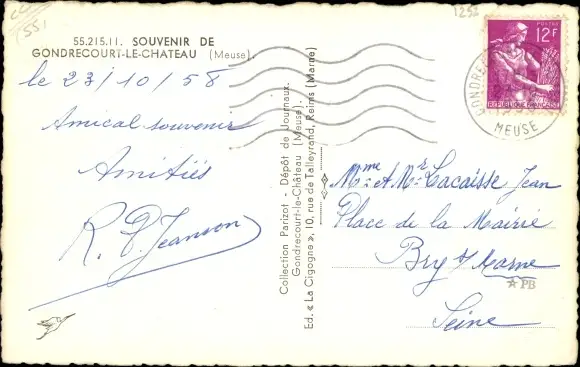 55.215.11. SOUVENIR DE
GONDRECOURT-LE-CHATEAU (Meuse)
le 23/10/58
Amical souvenir
Amitiés
R. P. Jeanson
Collection Parizot - Dépôt de Journaux.
Gondrecourt-le-Château (Meuse).
Ed. « La Cigogne », 10, rue de Talleyrand, Reims (Marne)
POSTES
12F
REPUBLIQUE FRANÇAISE
MEUSE
Mme & Mr Lacaisse Jean
Place de la Mairie
Bry s/ Marne
PB
Seine